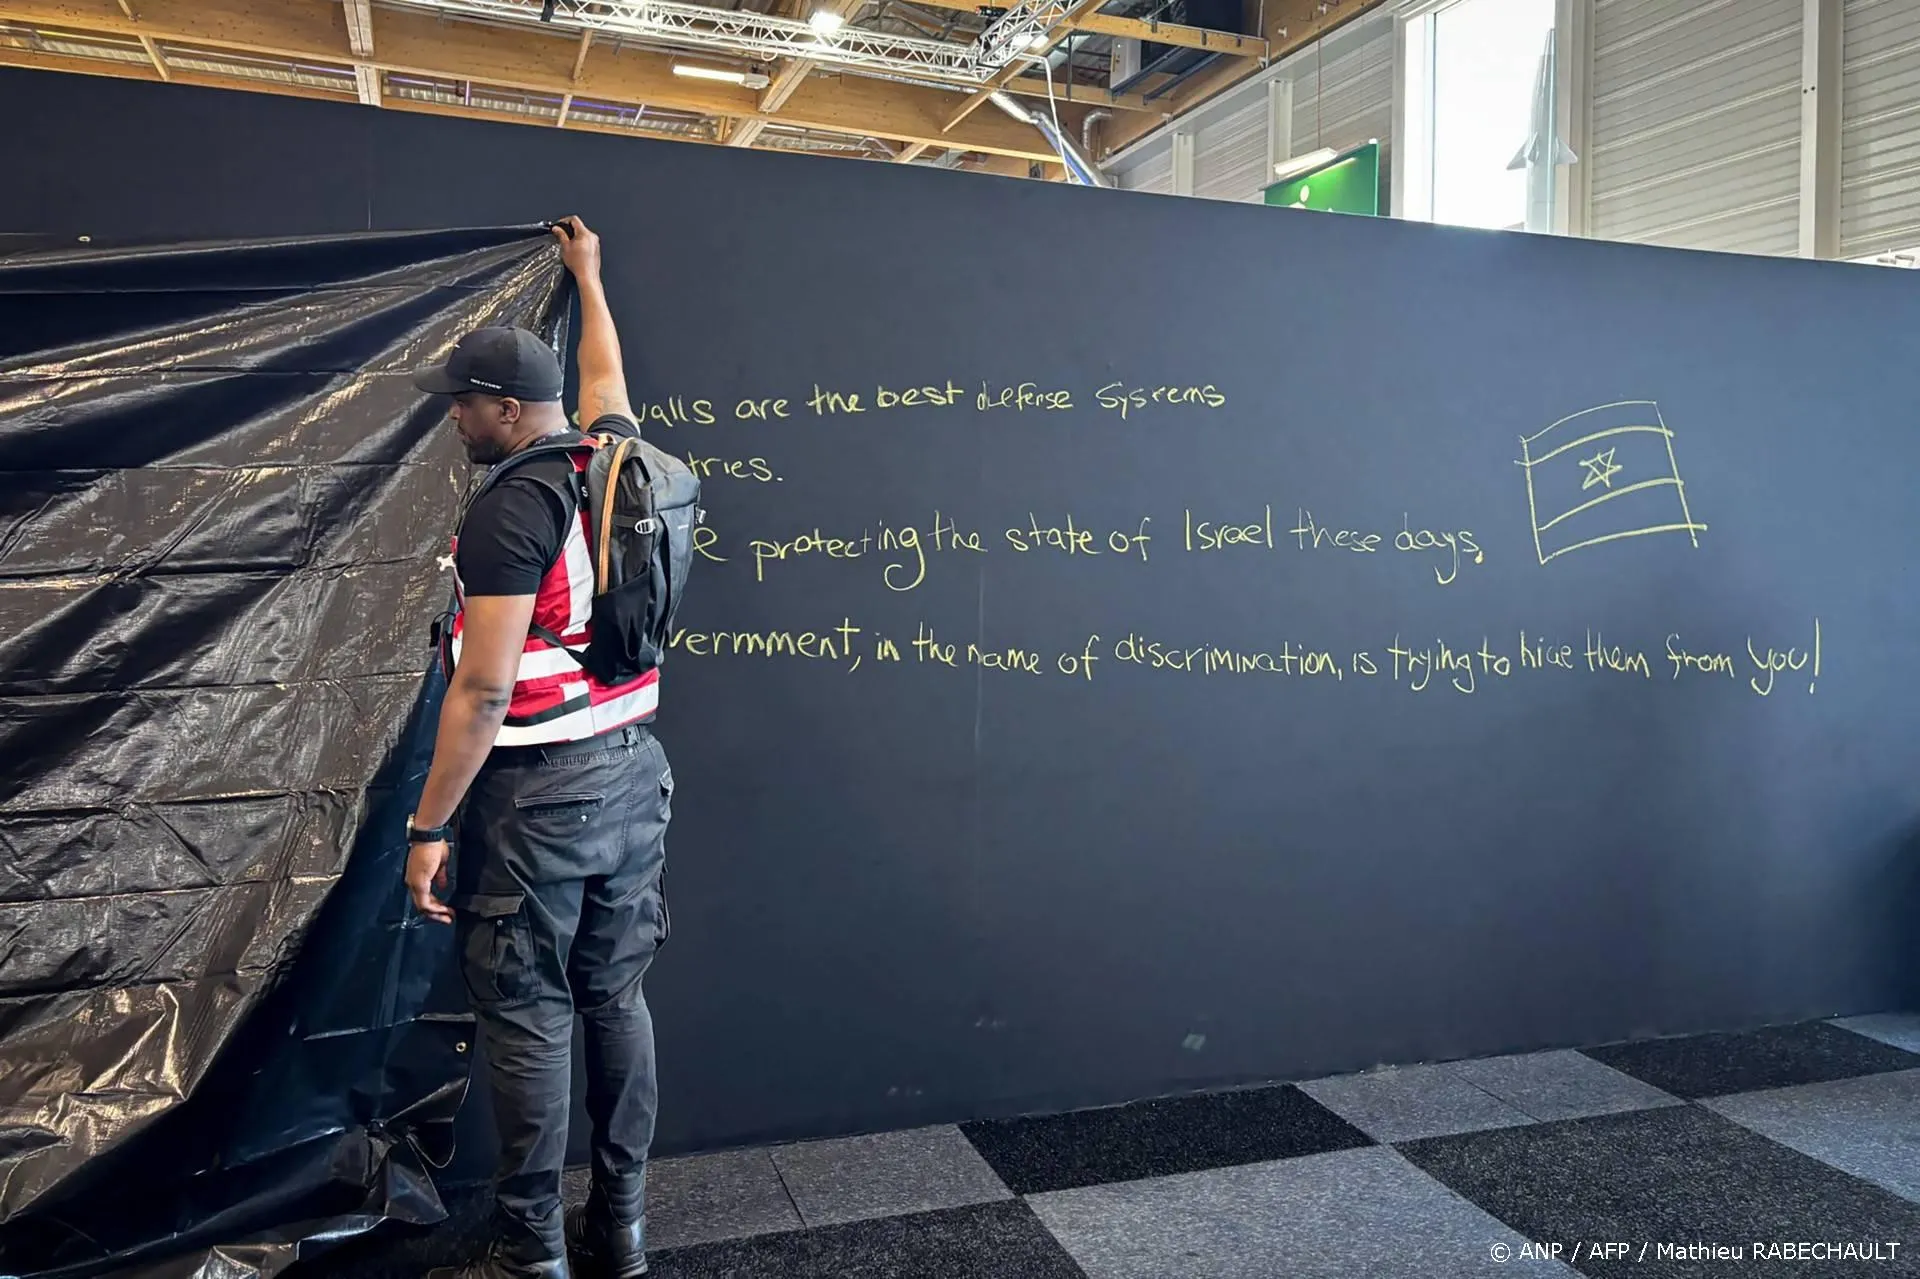 walls are the best defense systems
tries.
e protecting the state of Israel these days.
vernment, in the name of discrimination, is trying to hide them from you!
© ANP / AFP / Mathieu RABECHAULT